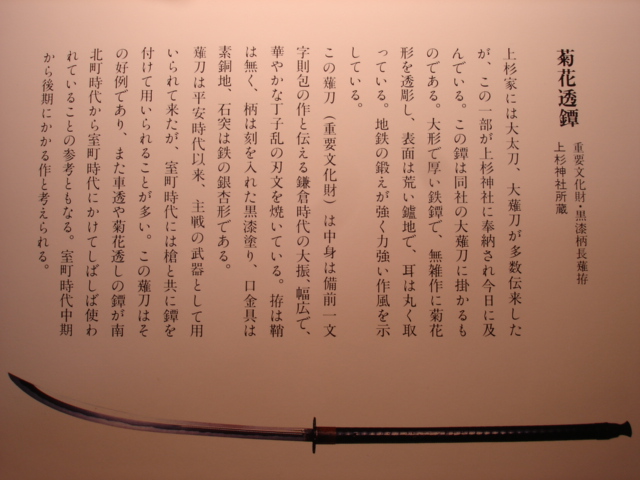 菊花透鐔
重要文化財・黒漆柄長薙拵
上杉神社所蔵
上杉家には大太刀、大薙刀が多数伝来した
が、この一部が上杉神社に奉納され今日に及
んでいる。この鐔は同社の大薙刀に掛かるも
のである。大形で厚い鉄鐔で、無雑作に菊花
形を透彫し、表面は荒い鑢地で、耳は丸く取
っている。地鉄の鍛えが強く力強い作風を示
している。
この薙刀(重要文化財)は中身は備前一文
字則包の作と伝える鎌倉時代の大振、幅広で、
華やかな丁子乱の刃文を焼いている。拵は鞘
は無く、柄は刻を入れた黒漆塗り、口金具は
素銅地、石突は鉄の銀杏形である。
薙刀は平安時代以来、主戦の武器として用
いられて来たが、室町時代には槍と共に鐔を
付けて用いられることが多い。この薙刀はそ
の好例であり、また車透や菊花透しの鐔が南
北町時代から室町時代にかけてしばしば使わ
れていることの参考ともなる。室町時代中期
から後期にかかる作と考えられる。